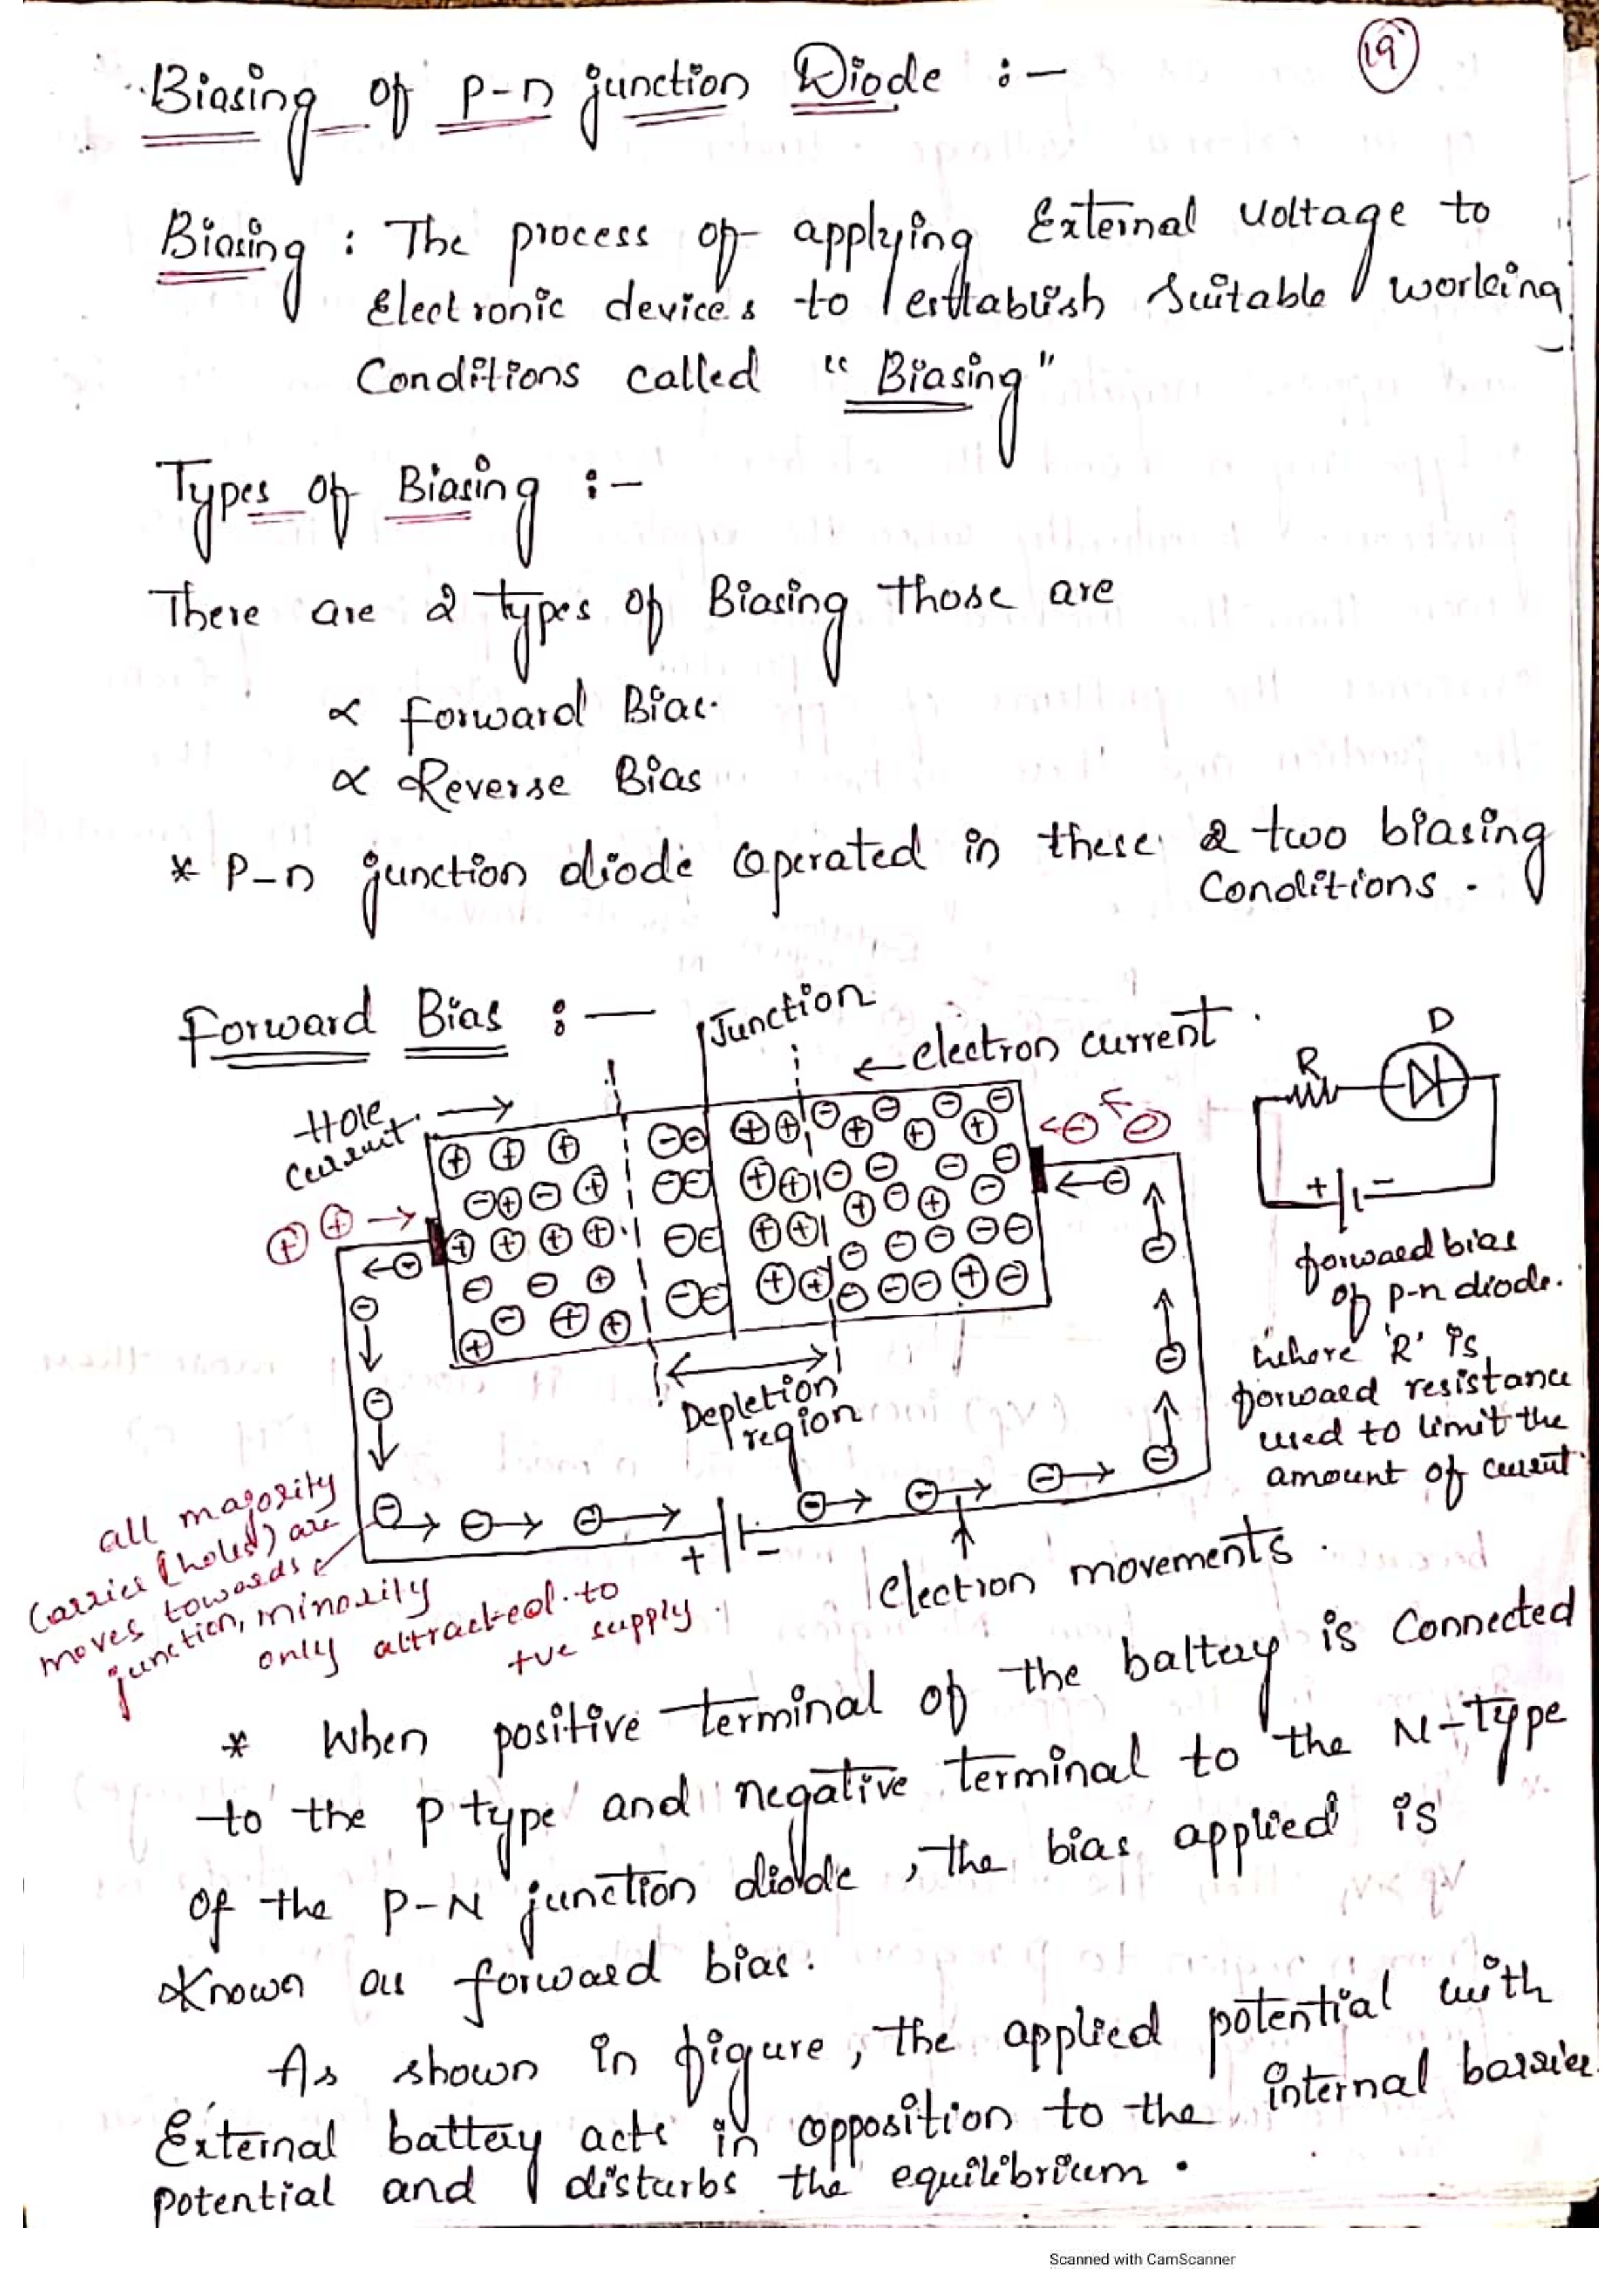 19
Biasing of P-n junction Diode :-
Biasing : The process of applying External voltage to
Electronic devices to establish suitable working
Conditions called "Biasing"
Types of Biasing :-
There are 2 types of Biasing those are
∝ Forward Bias.
∝ Reverse Bias
* P-n junction diode operated in these 2 two biasing
Conditions.
Forward Bias :-
Junction
← electron current.
Hole →
current
D
R
+ -
forward bias
of p-n diode.
where 'R' is
forward resistance
used to limit the
amount of current
Depletion
region
+ -
Electron movements.
all majority
carries (holes) are
moves towards
junction, minority
only attracted to
+ve supply.
* When positive terminal of the battery is Connected
to the P type and negative terminal to the N-Type
of the P-N junction diode, the bias applied is
Known as forward bias.
As shown in figure, the applied potential with
External battery acts in opposition to the internal barrier
potential and disturbs the equilibrium.
Scanned with CamScanner